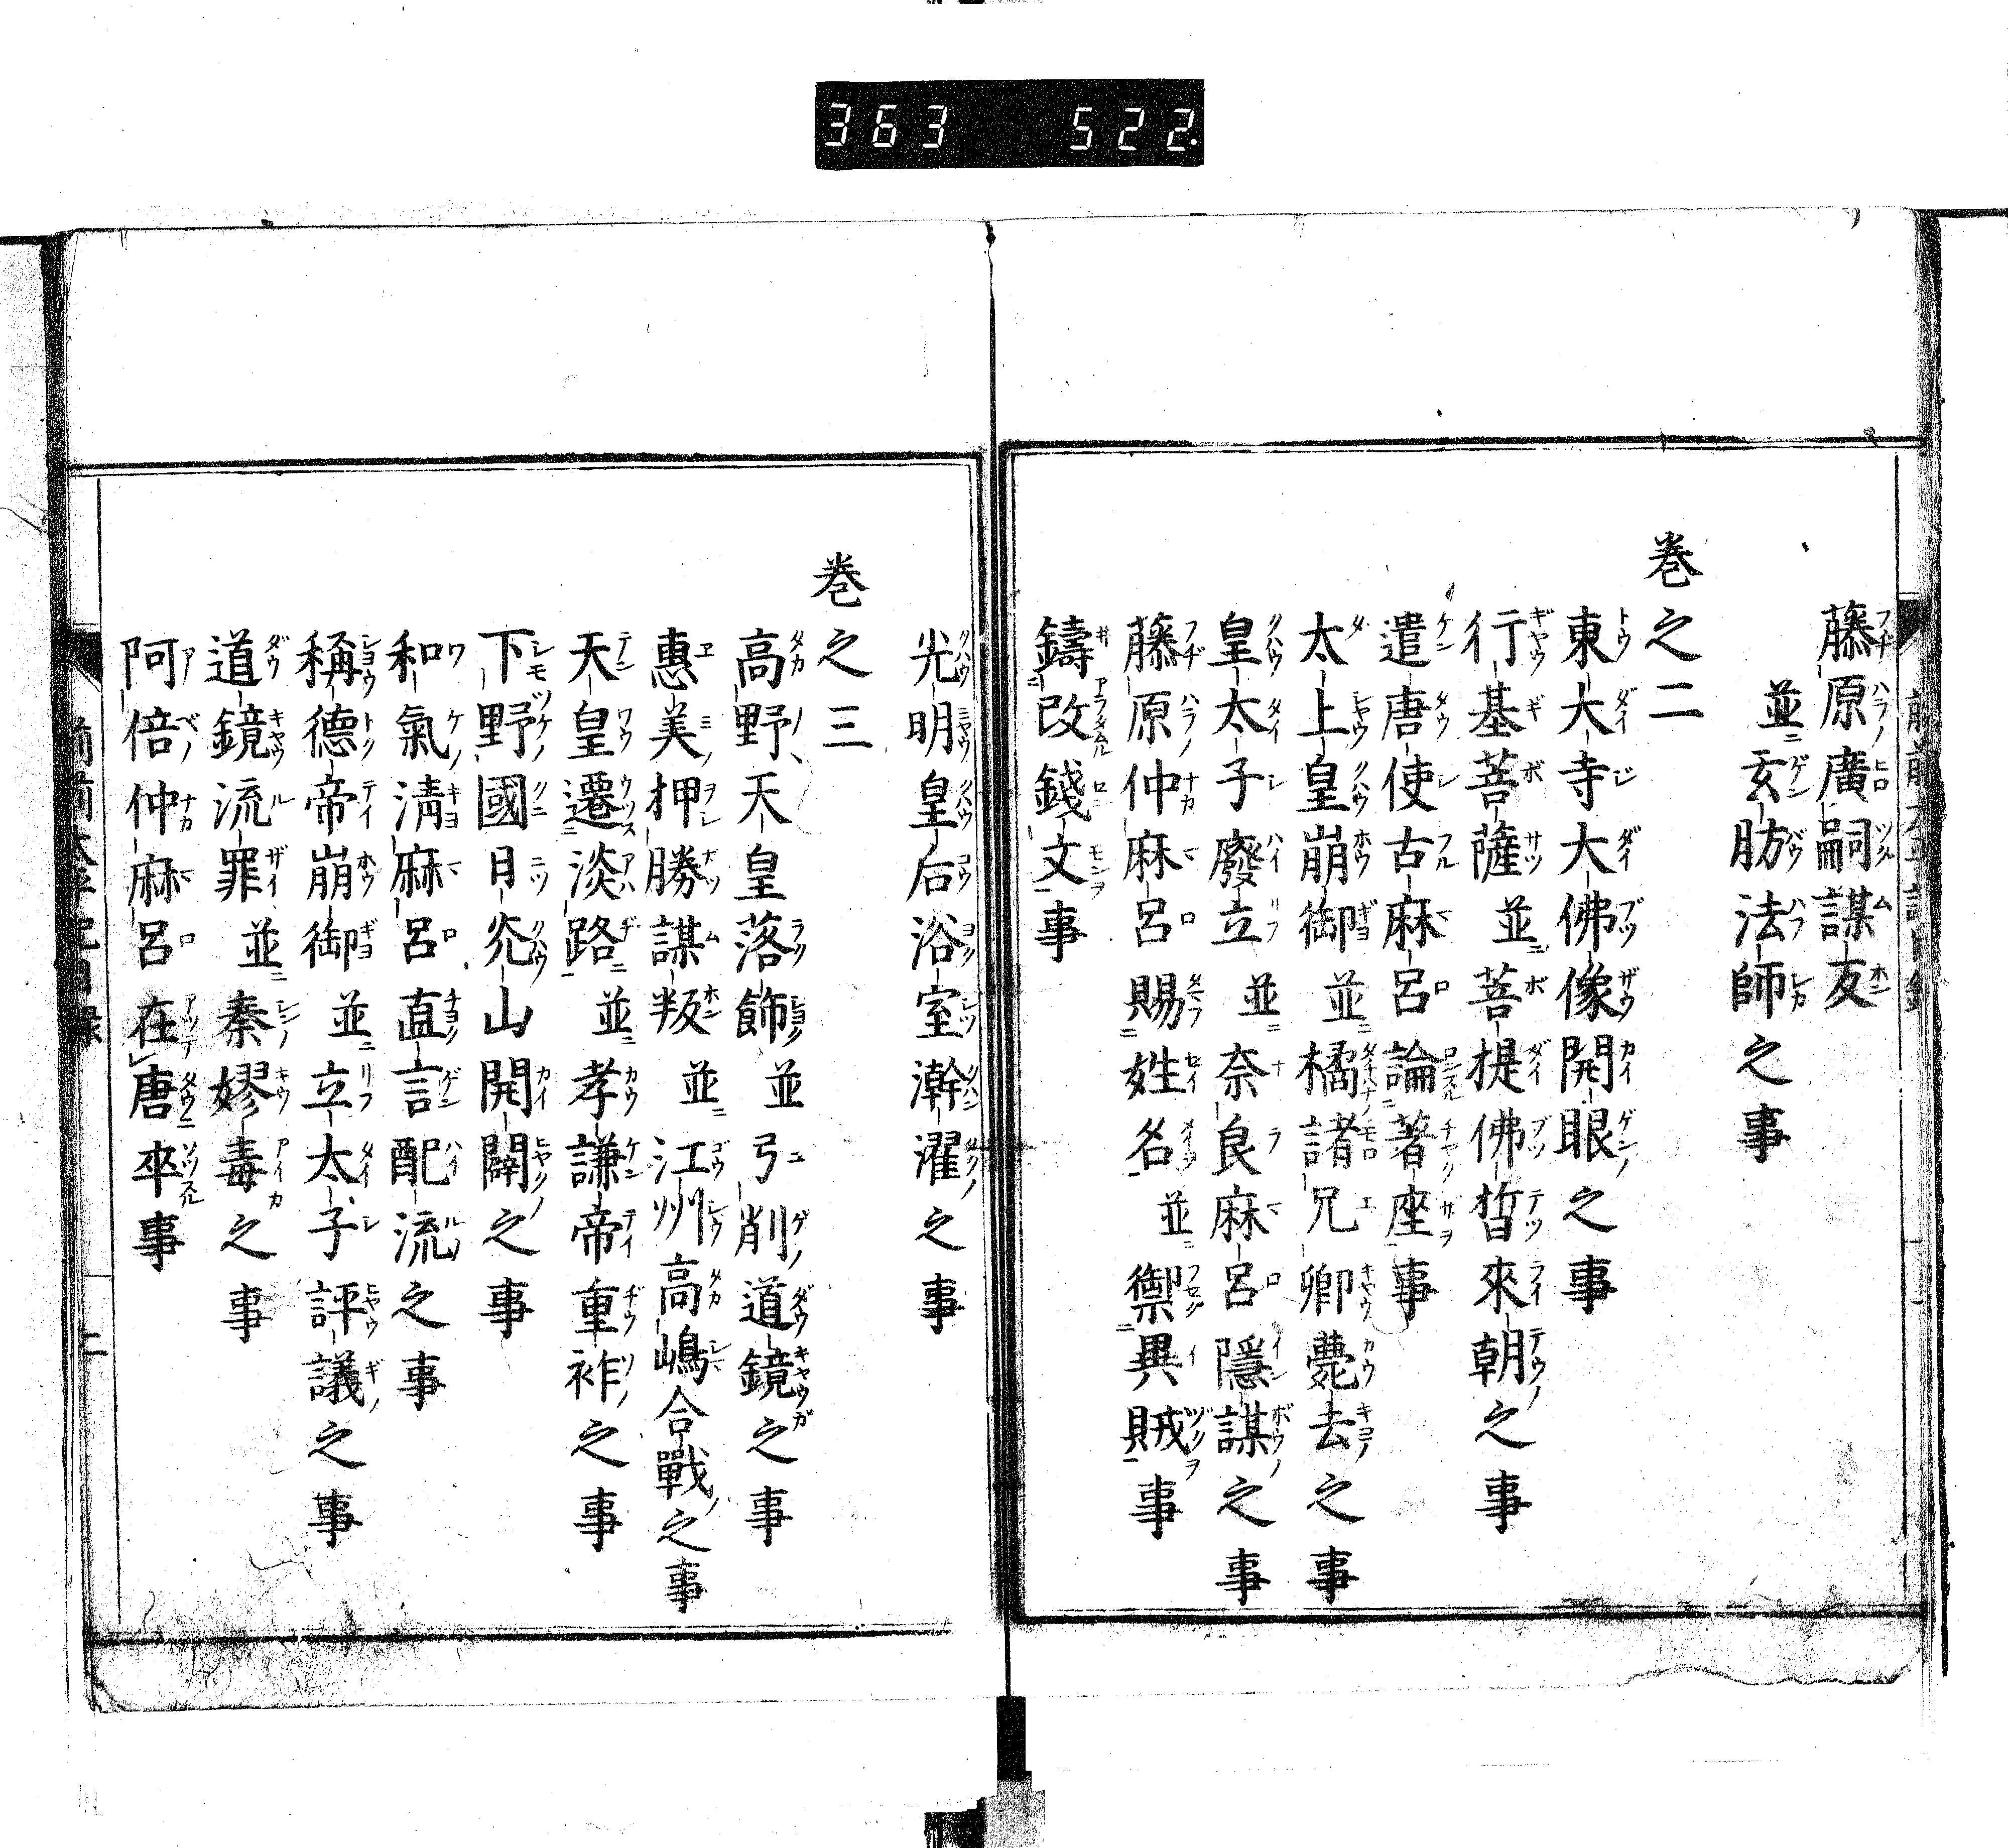 363 522.
藤原廣嗣謀反
並玄肪法師之事
巻之二
東大寺大佛像開眼之事
行基菩薩並菩提佛哲來朝之事
遣唐使古麻呂論著座事
太上皇崩御並橘諸兄卿薨去之事
皇太子廢立並奈良麻呂隱謀之事
藤原仲麻呂賜姓名並禦異賊事
鑄改錢文事
光明皇后浴室澣濯之事
巻之三
高野天皇落飾並弓削道鏡之事
惠美押勝謀叛並江州高嶋合戰之事
天皇遷淡路並孝謙帝重祚之事
下野國日光山開闢之事
和氣清麻呂直言配流之事
稱德帝崩御並立太子評議之事
道鏡流罪並秦嫪毐之事
阿倍仲麻呂在唐卒事